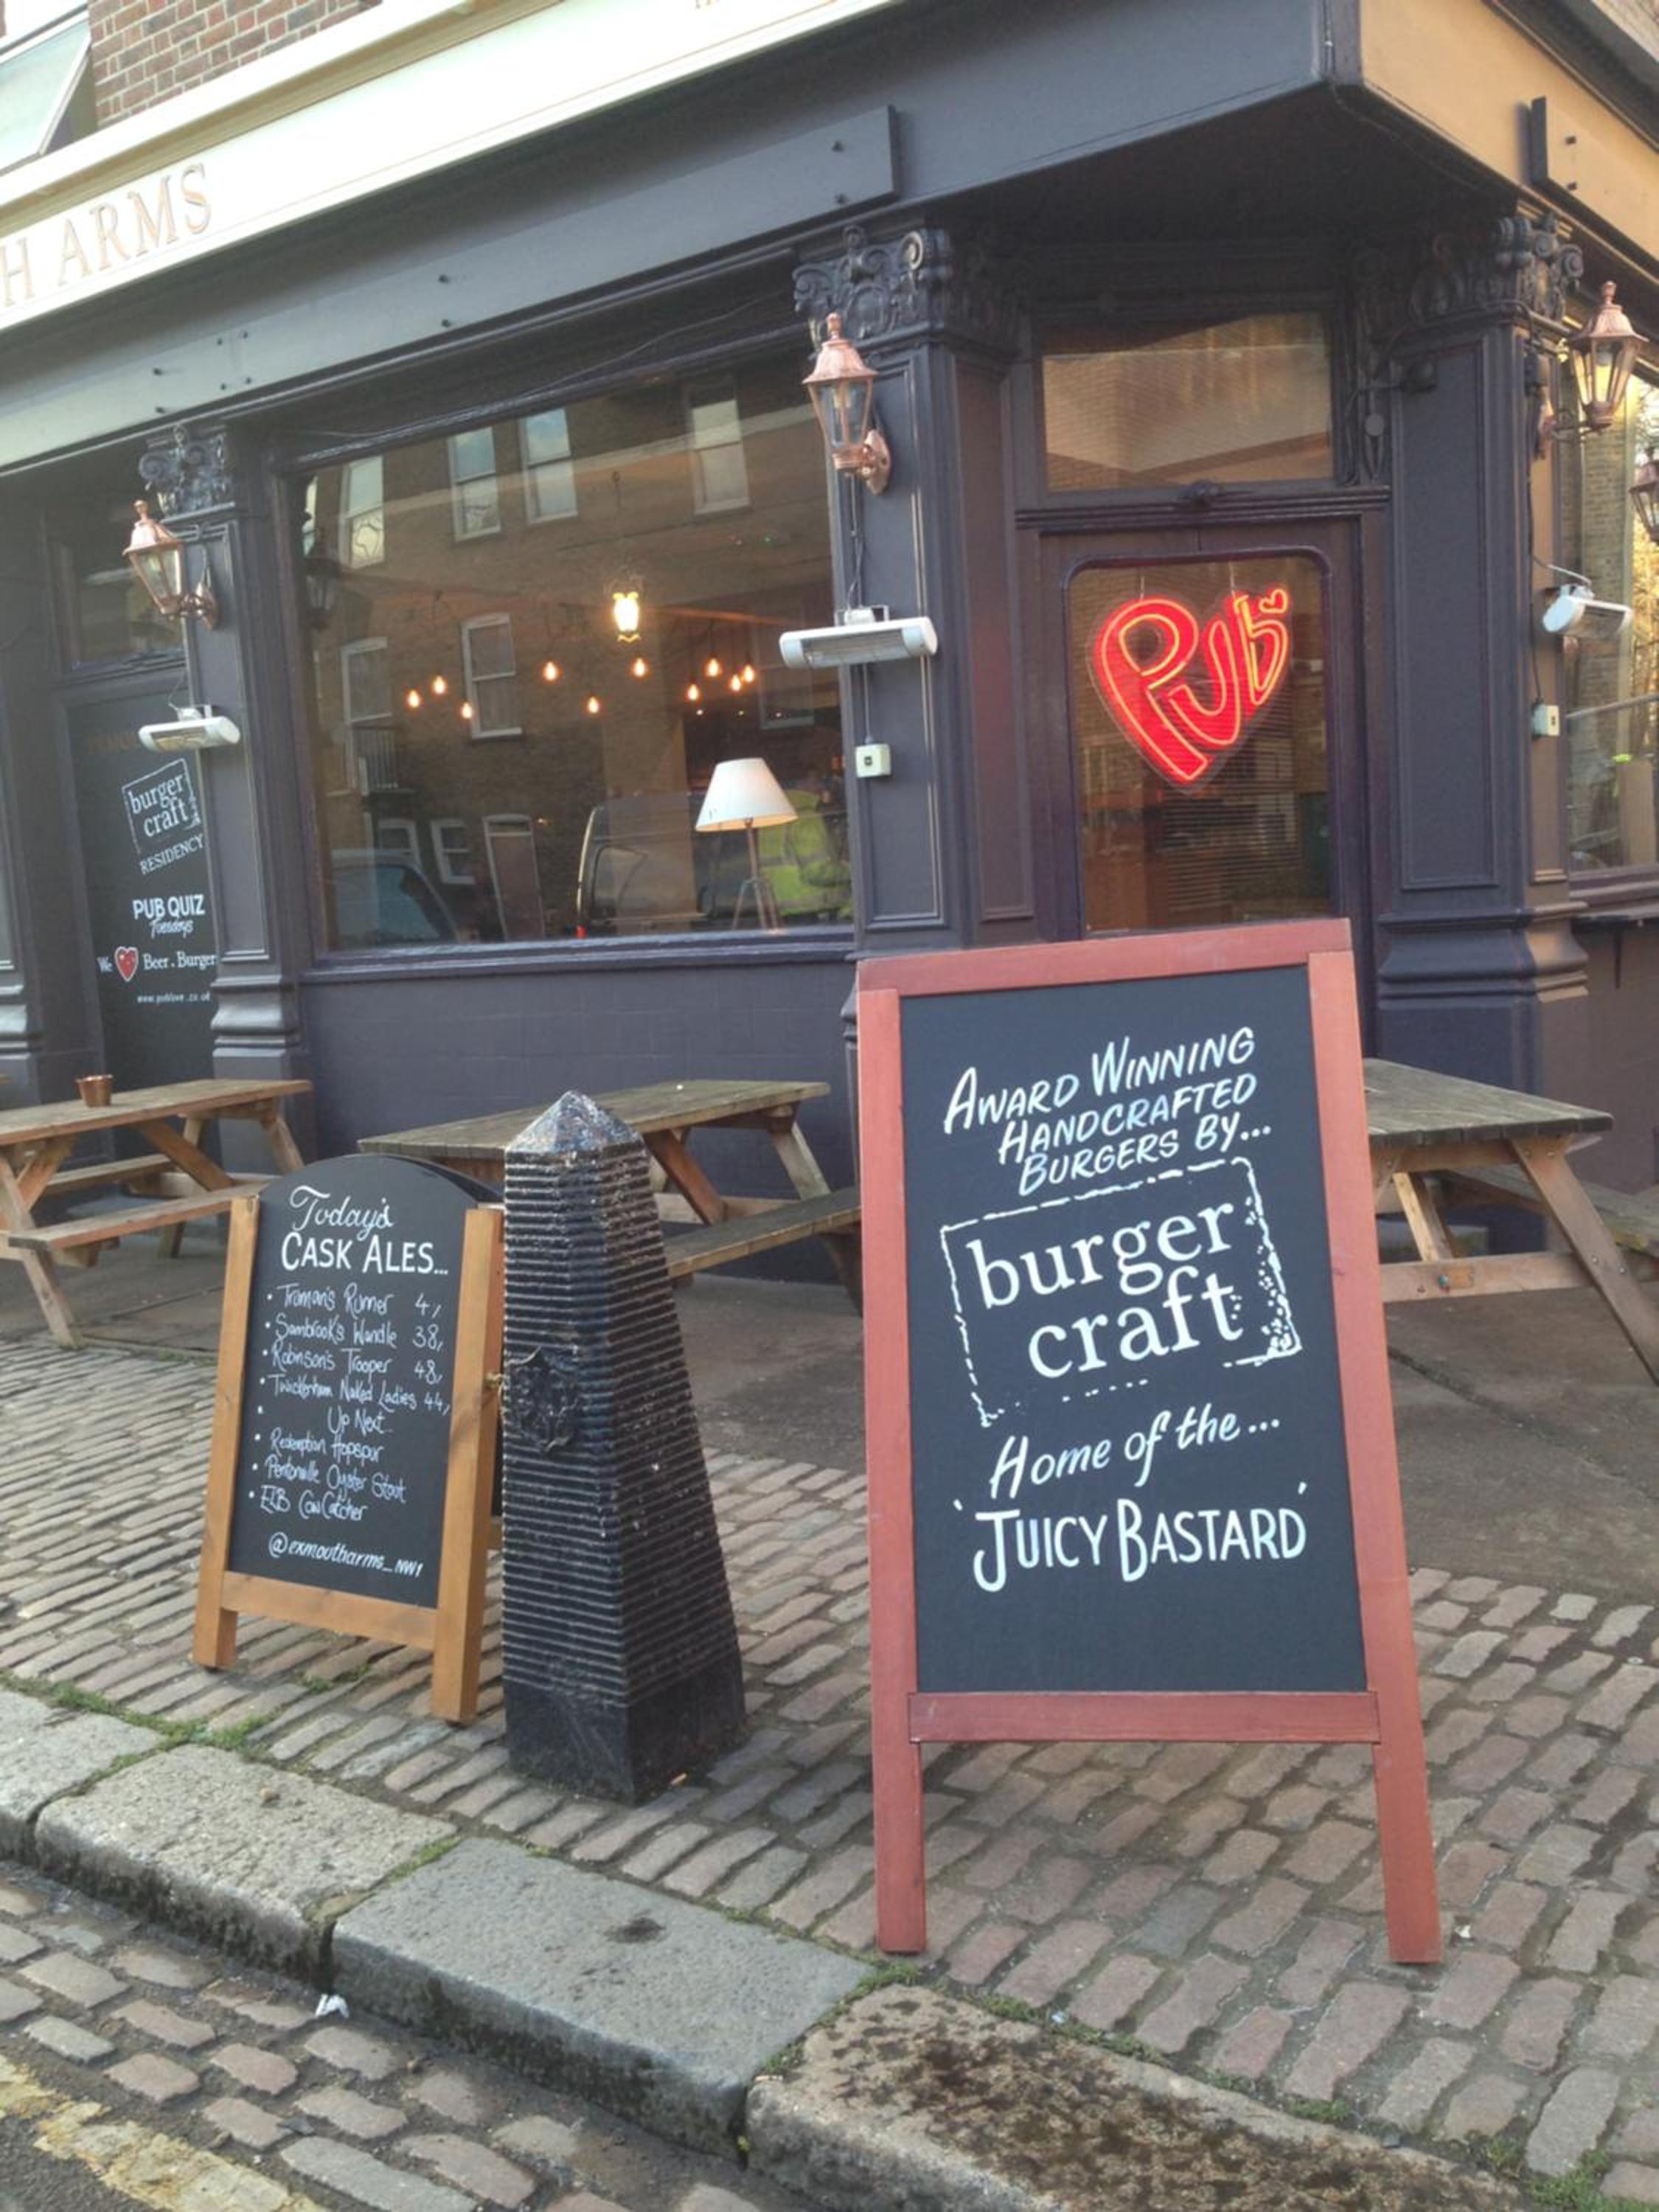 H ARMS
Pub
burger
craft
RESIDENCY
PUB QUIZ
Tuesdays
We Beer. Burger
www.publove.co.uk
Today's
CASK ALES...
• Truman's Runner 4,
• Sambrook's Wandle 38,
• Robinson's Trooper 48,
• Twickenham Naked Ladies 44,
• Up Next
• Redemption Hopspur
• Pentonville Oyster Stout
• ELB Cow Catcher
@exmoutharms_NW1
AWARD WINNING
HANDCRAFTED
BURGERS BY...
burger
craft
Home of the...
'JUICY BASTARD'